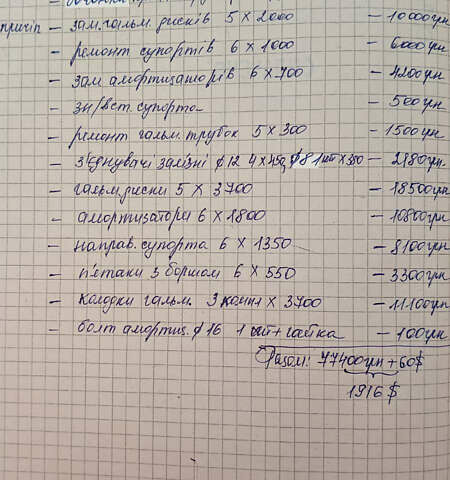 причіп - зам. гальм. дисків 5 x 2000 - 10000грн
- ремонт супортів 6 x 1000 - 6000грн
- зам амортизаторів 6 x 700 - 4200грн
- зн/вст. супорта - 500грн
- ремонт гальм. трубок 5 x 300 - 1500грн
- з'єднувачі залізні ϕ12 4 x ϕ8 1 шт x - 2180грн
- гальм. диски 5 x 3700 - 18500грн
- амортизатори 6 x 1800 - 10800грн
- направ. супорта 6 x 1350 - 8100грн
- п'єтаки з боршом 6 x 550 - 3300грн
- колодки гальм. 3 компл x 3700 - 11100грн
- болт амортиз. ϕ16 1 шт + гайка - 100грн
Разом: 77400грн + 60$
1916 $